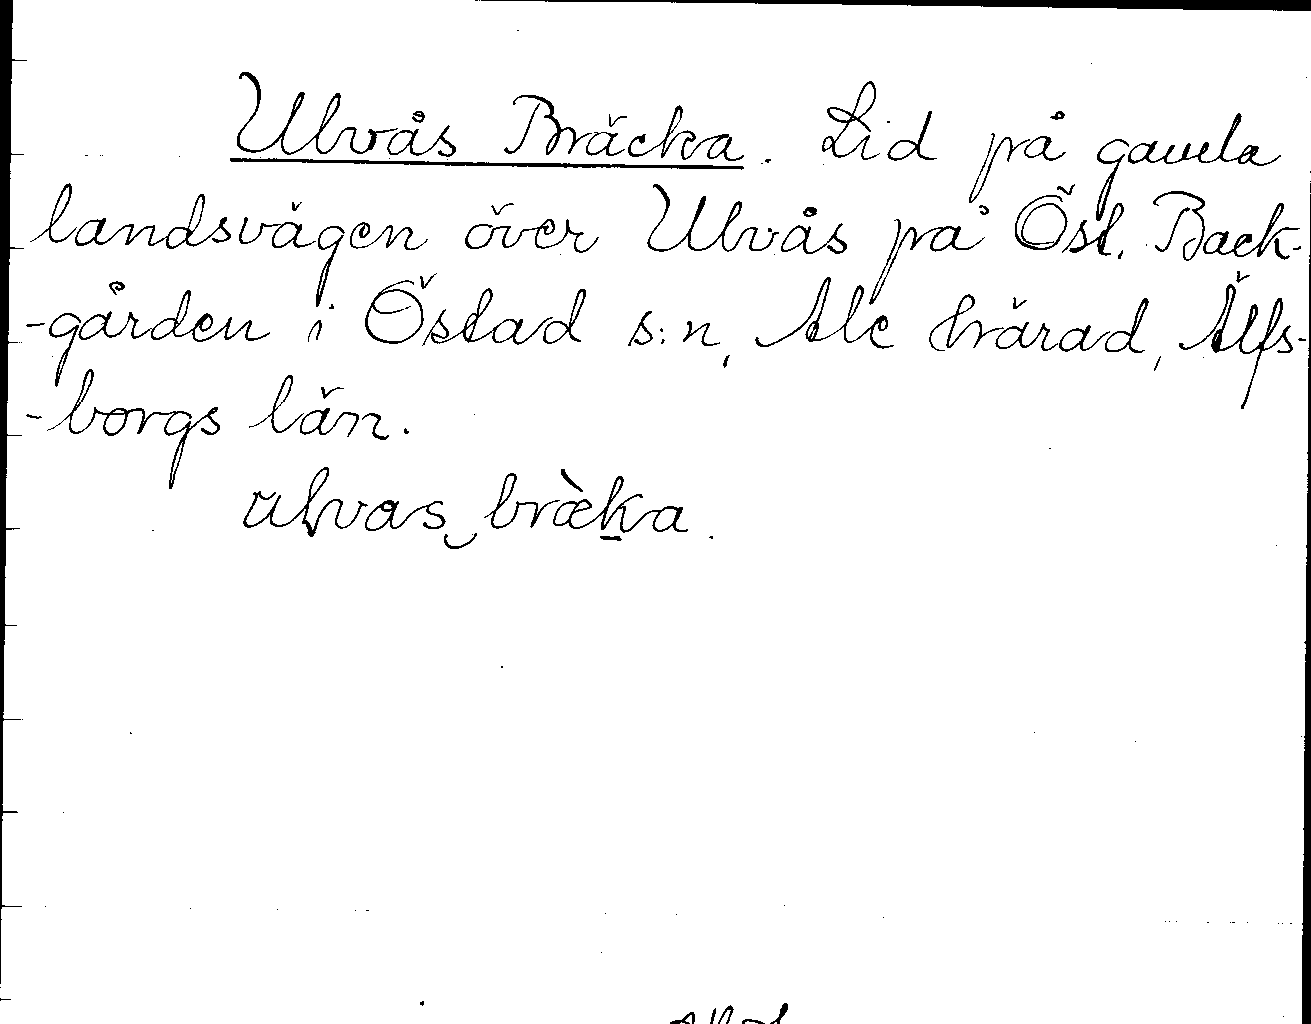 Ulvås Bräcka. Lid på gamla
landsvägen över Ulvås på Östl. Back-
-gården i Östad s:n, Ale härad, Älfs-
-borgs län.
ulvas bràka